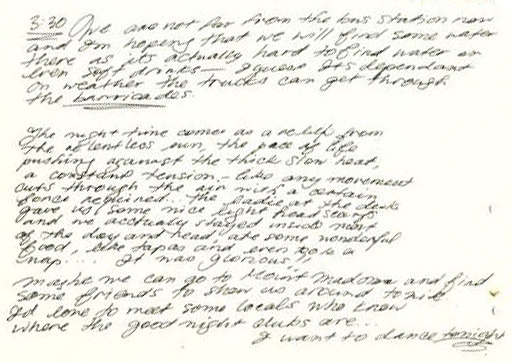 3:30 We are not far from the bus station now
and I'm hoping that we will find some water
there as its actually hard to find water or
even soft drinks — I guess its dependant
on weather the trucks can get through
the barricades.
The night time comes as a relief from
the relentless sun, the pace of life
pushing against the thick slow heat,
a constant tension - like any movement
cuts through the air with a certain
force required... the ladie at the desk
gave us some nice light head scarfs
and we actually stayed inside most
of the day and read, ate some wonderful
food, like tapas and even took a
snap.... It was glorious!
maybe we can go to Mount and find
some friends to show us around tonite
I'd love to meet some locals who know
where the good night clubs are...
I want to dance tonight